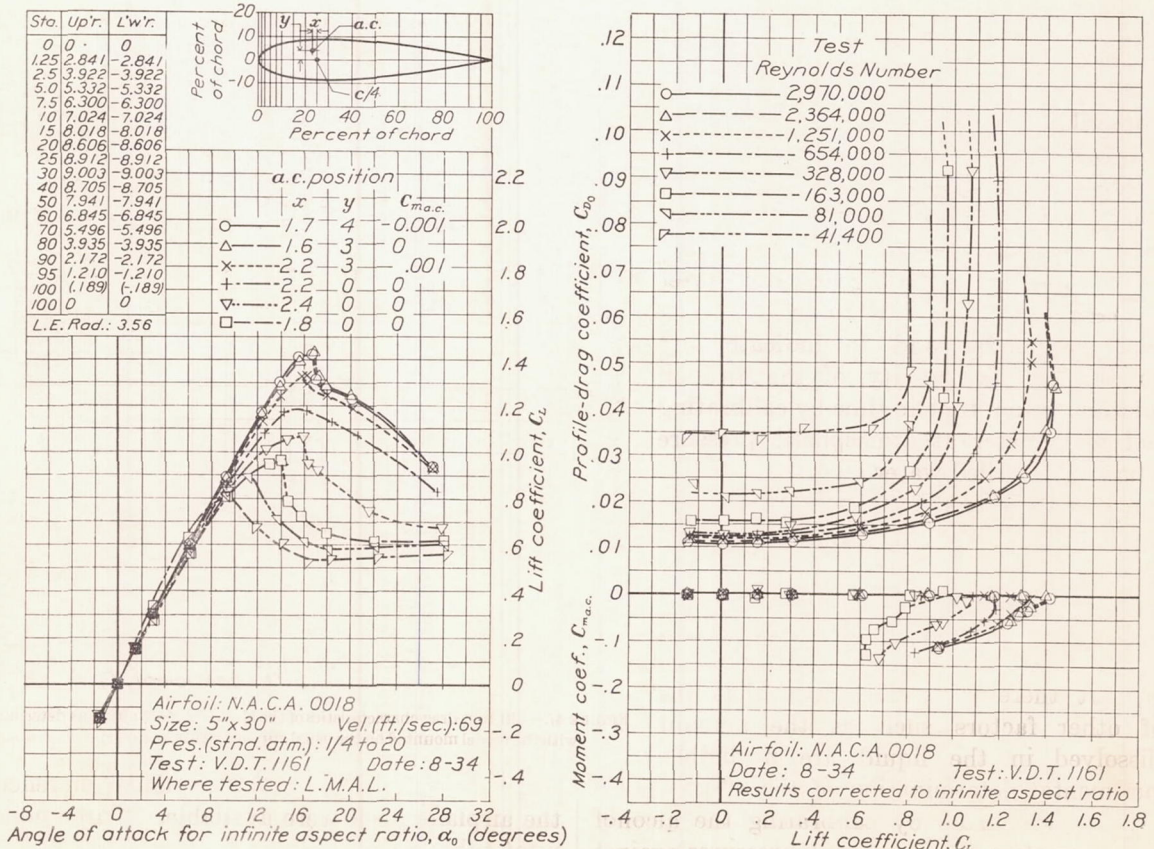 Sta. Up'r. L'w'r.
0 0 0
1.25 2.841 -2.841
2.5 3.922 -3.922
5.0 5.332 -5.332
7.5 6.300 -6.300
10 7.024 -7.024
15 8.018 -8.018
20 8.606 -8.606
25 8.912 -8.912
30 9.003 -9.003
40 8.705 -8.705
50 7.941 -7.941
60 6.845 -6.845
70 5.496 -5.496
80 3.935 -3.935
90 2.172 -2.172
95 1.210 -1.210
100 (.189) (-.189)
100 0 0
L.E. Rad.: 3.56
Percent of chord
20
10
0
-10
y x a.c.
c/4
0 20 40 60 80 100
Percent of chord
a.c. position
x y Cma.c.
1.7 4 -0.001
1.6 3 0
2.2 3 .001
2.2 0 0
2.4 0 0
1.8 0 0
2.2
2.0
1.8
1.6
1.4
1.2
1.0
.8
.6
.4
.2
0
-.2
-.4
Lift coefficient, CL
Airfoil: N.A.C.A. 0018
Size: 5"x30" Vel. (ft./sec.): 69
Pres. (st'nd. atm.): 1/4 to 20
Test: V.D.T. 1161 Date: 8-34
Where tested: L.M.A.L.
-8 -4 0 4 8 12 16 20 24 28 32
Angle of attack for infinite aspect ratio, α0 (degrees)
Test
Reynolds Number
2,970,000
2,364,000
1,251,000
654,000
328,000
163,000
81,000
41,400
.12
.11
.10
.09
.08
.07
.06
.05
.04
.03
.02
.01
0
-.1
-.2
-.3
-.4
Profile-drag coefficient, CD0
Moment coef., Cma.c.
Airfoil: N.A.C.A. 0018
Date: 8-34 Test: V.D.T. 1161
Results corrected to infinite aspect ratio
-.4 -.2 0 .2 .4 .6 .8 1.0 1.2 1.4 1.6 1.8
Lift coefficient, CL